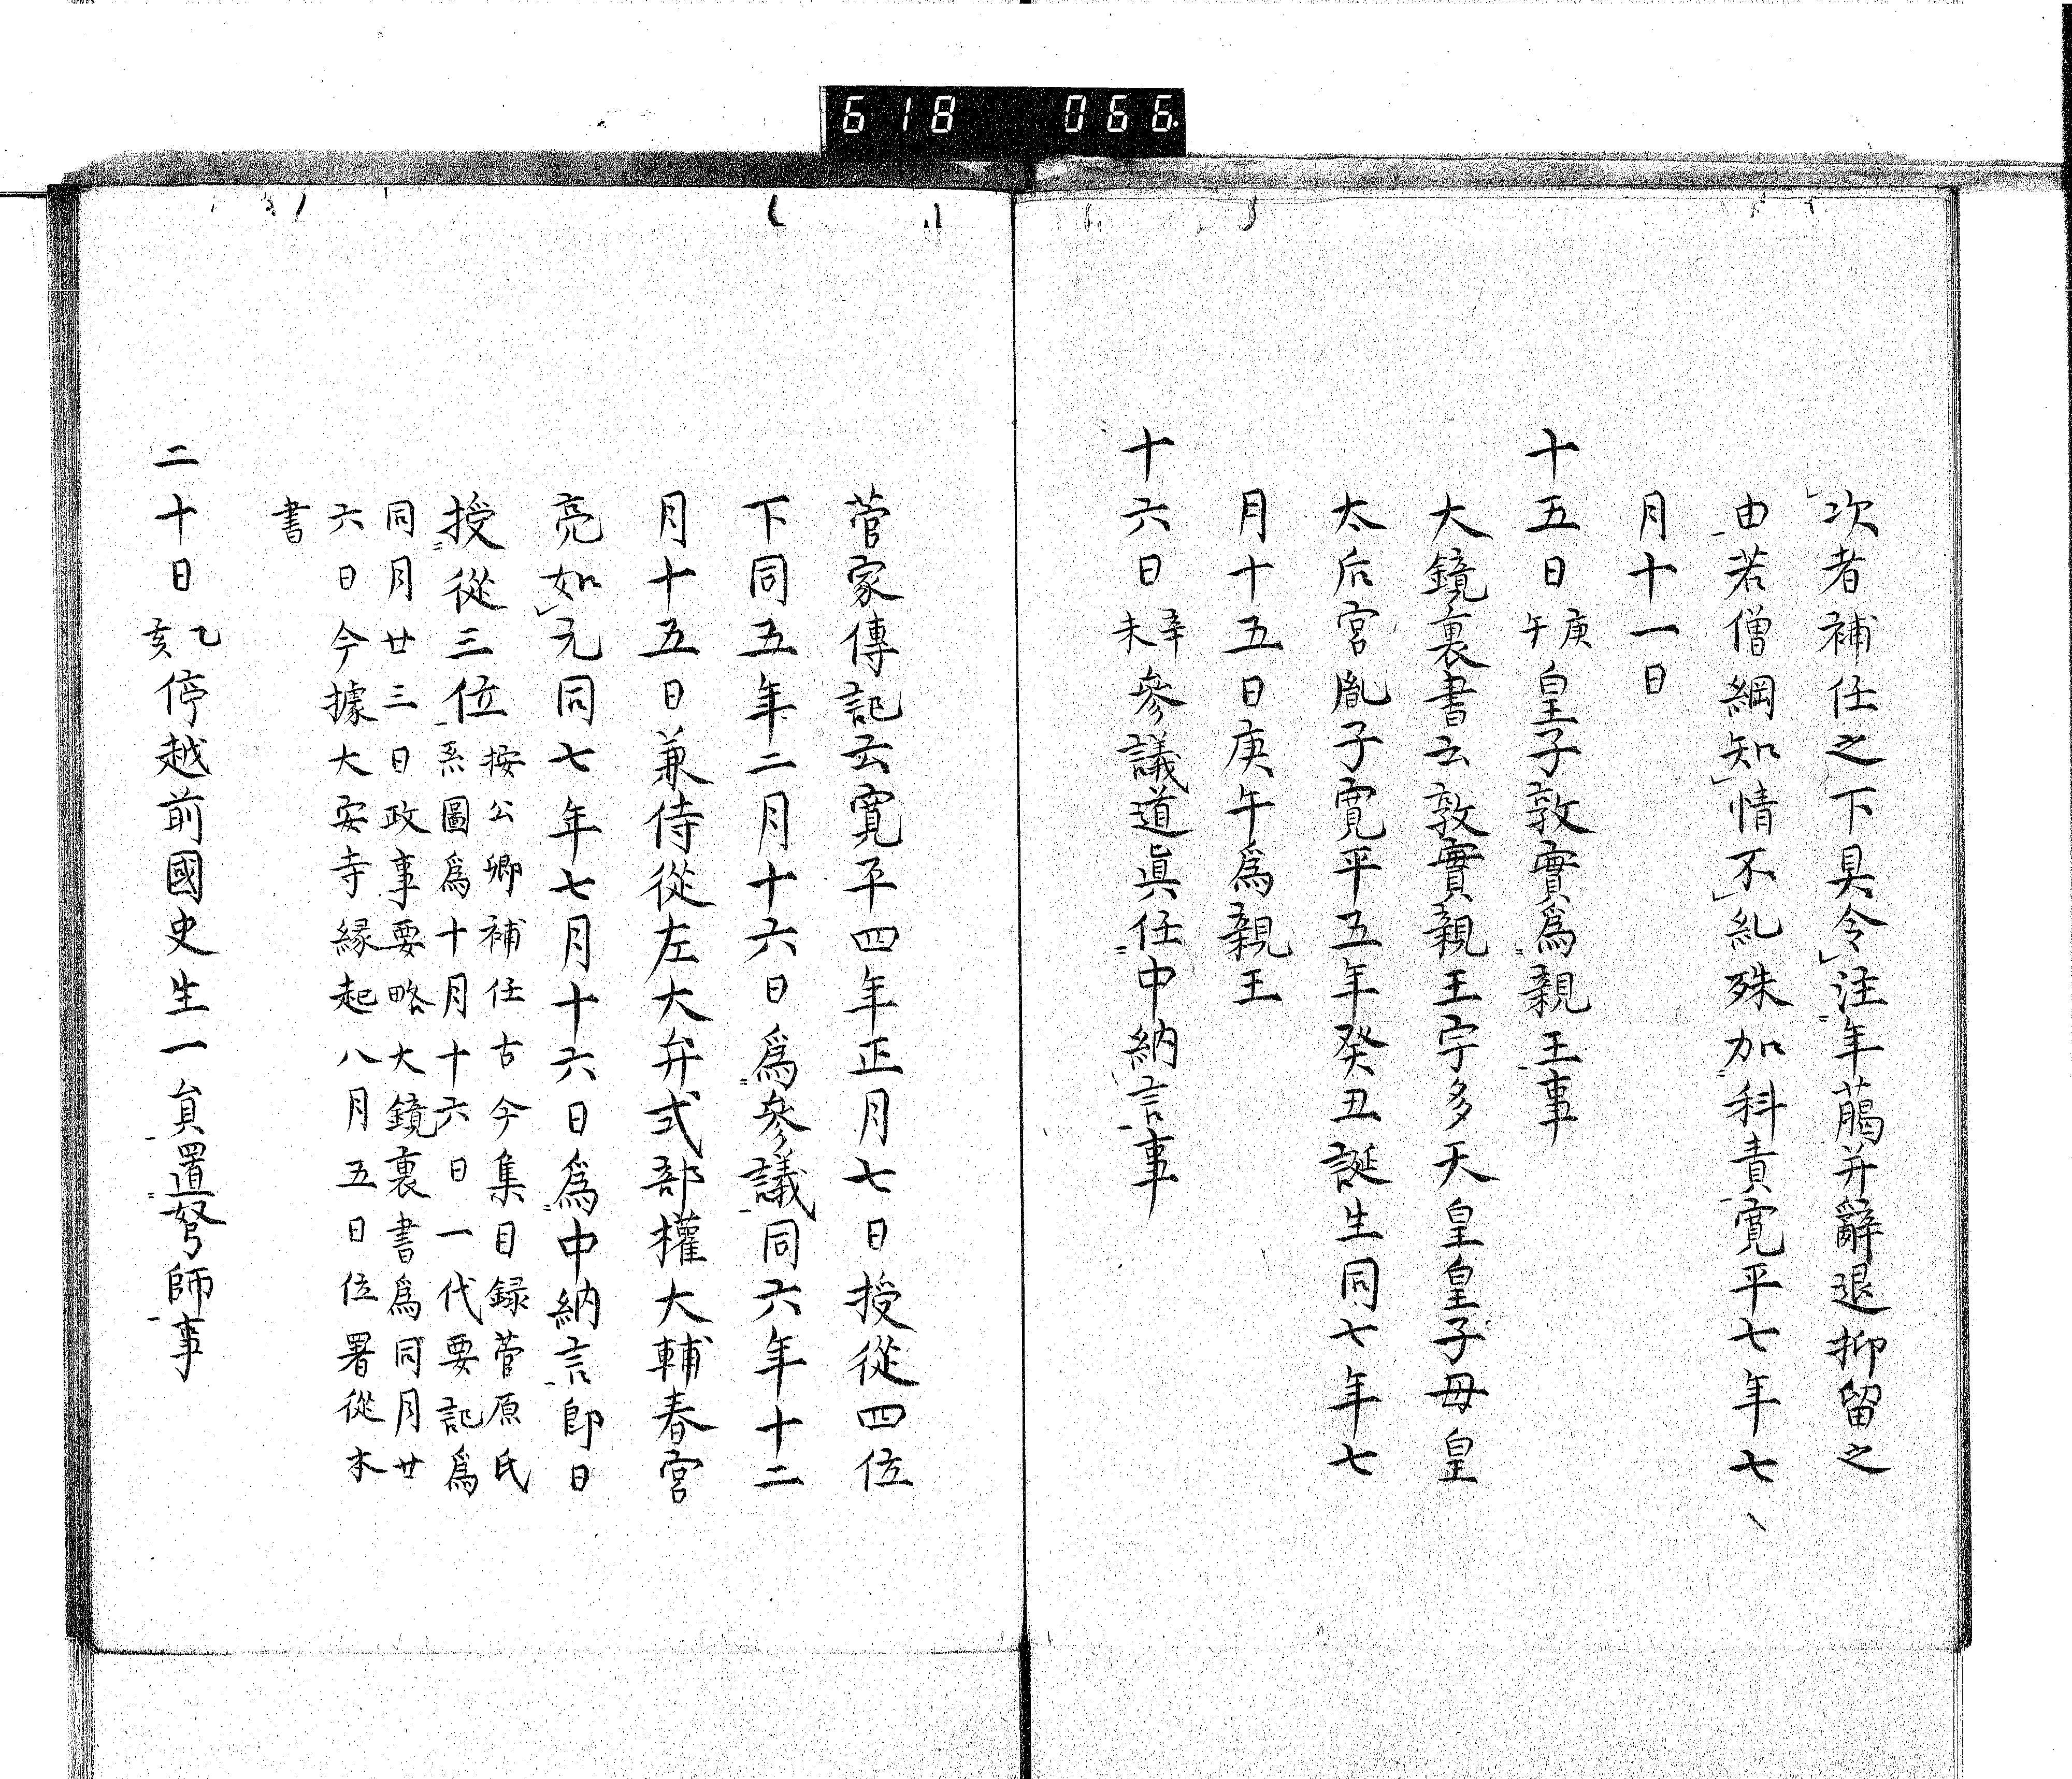 618 066
次者補任之下具令注年﨟并辭退抑留之
由若僧綱知情不糺殊加科責寛平七年七
月十一日
十五日庚午皇子敦實爲親王事
大鏡裏書云敦實親王宇多天皇皇子母皇
太后宮胤子寛平五年癸丑誕生同七年七
月十五日庚午爲親王
十六日辛未參議道眞任中納言事
菅家傳記云寛平四年正月七日授從四位
下同五年二月十六日爲參議同六年十二
月十五日兼侍從左大弁式部權大輔春宮
亮如元同七年七月十六日爲中納言即日
授從三位按公卿補任古今集目録菅原氏
系圖爲十月十六日一代要記爲
同月廿三日政事要略大鏡裏書爲同月廿
六日今據大安寺縁起八月五日位署從本
書
二十日乙亥停越前國史生一員置弩師事